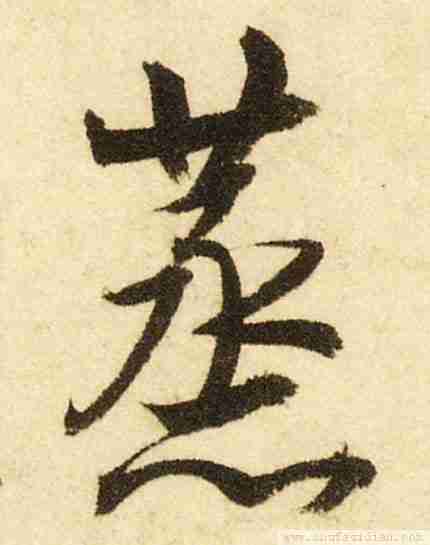 蒸
www.shufazidian.com